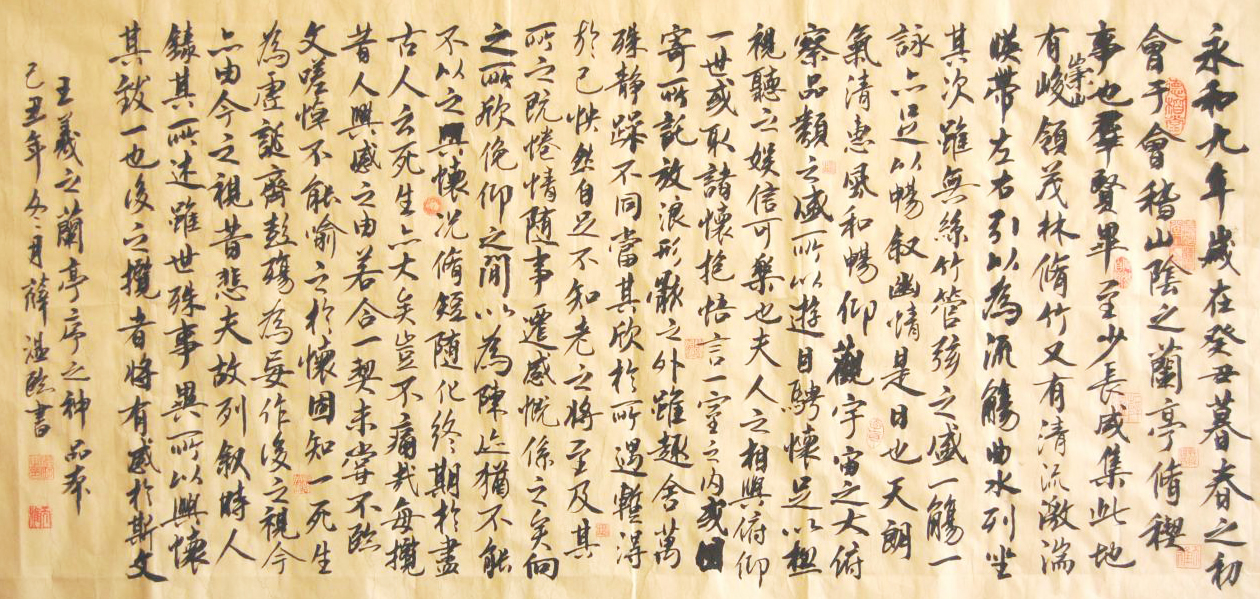 永和九年歲在癸丑暮春之初
會于會稽山陰之蘭亭脩稧
事也羣賢畢至少長咸集此地
有崇山峻領茂林脩竹又有清流激湍
暎帶左右引以為流觴曲水列坐
其次雖無絲竹管弦之盛一觴一
詠亦足以暢敘幽情是日也天朗
氣清惠風和暢仰觀宇宙之大俯
察品類之盛所以遊目騁懷足以極
視聽之娛信可樂也夫人之相與俯仰
一世或取諸懷抱悟言一室之內或因
寄所託放浪形骸之外雖趣舍萬
殊靜躁不同當其欣於所遇暫得
於己怏然自足不知老之將至及其
所之既惓情隨事遷感慨係之矣向
之所欣俛仰之間以為陳迹猶不能
不以之興懷況脩短隨化終期於盡
古人云死生亦大矣豈不痛哉每攬
昔人興感之由若合一契未嘗不臨
文嗟悼不能喻之於懷固知一死生
為虛誕齊彭殤為妄作後之視今
亦由今之視昔悲夫故列敘時人
錄其所述雖世殊事異所以興懷
其致一也後之攬者將有感於斯文
王羲之蘭亭序之神品本
己丑年冬月薛溫臨書